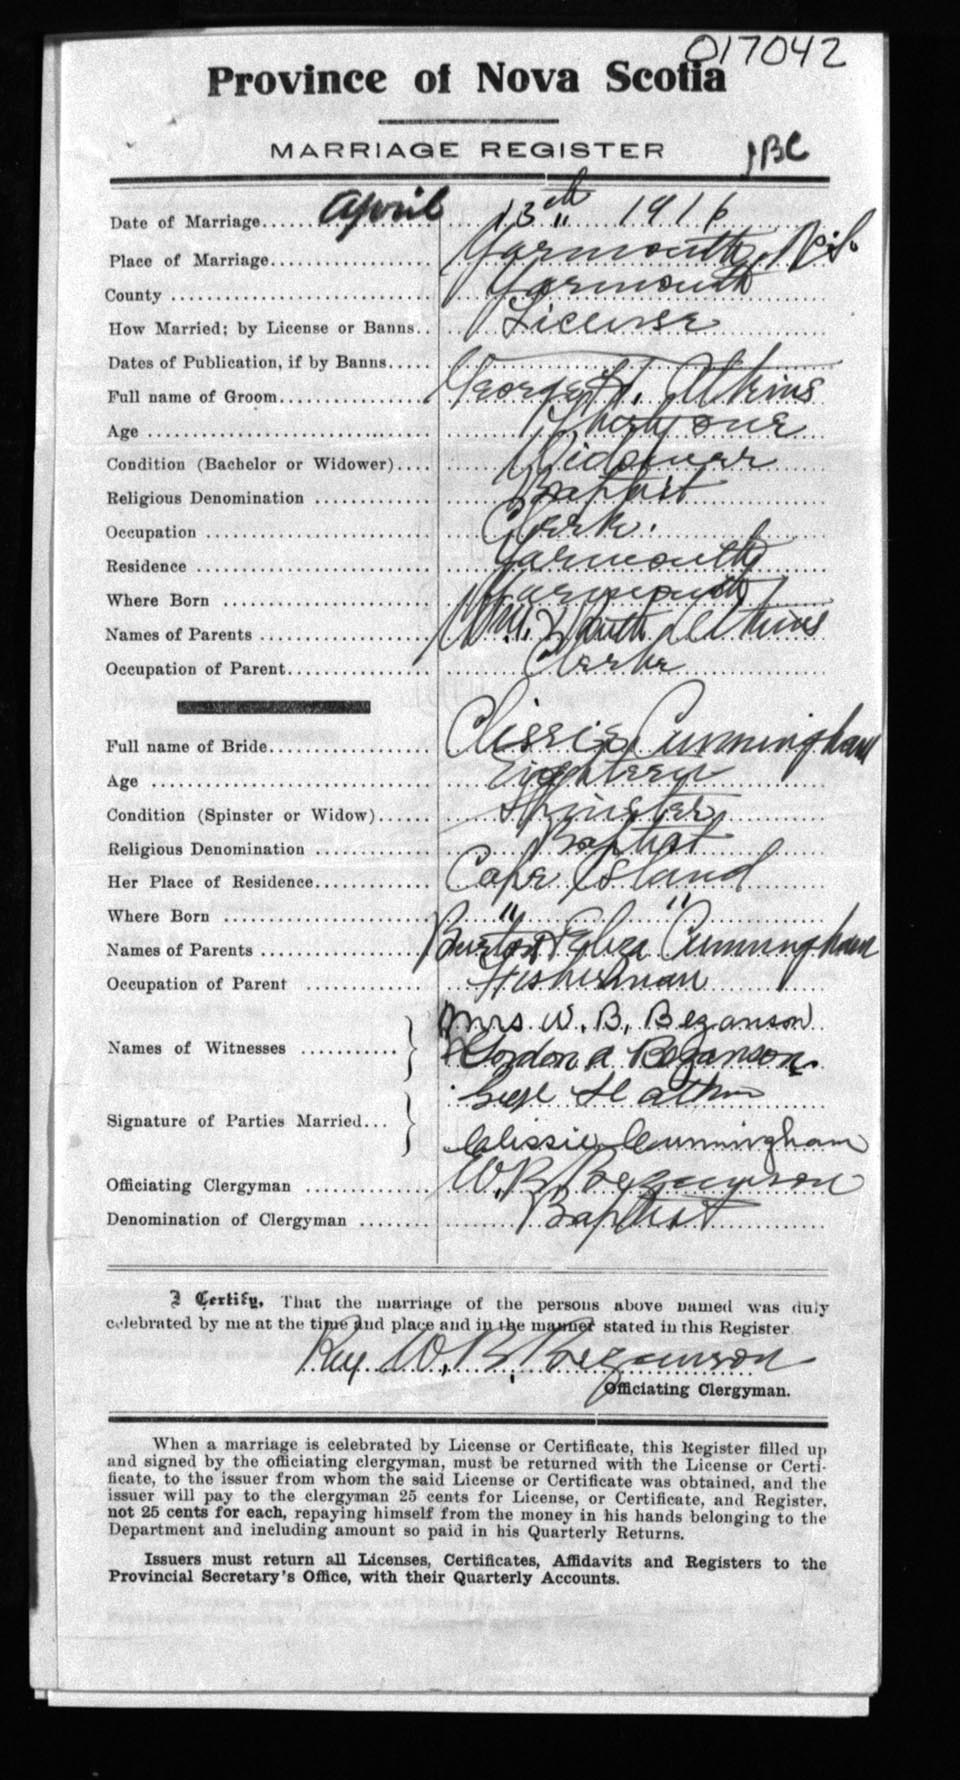 017042
Province of Nova Scotia
MARRIAGE REGISTER
JBC
Date of Marriage April 13th 1916
Place of Marriage Yarmouth, N.S.
County Yarmouth
How Married; by License or Banns License
Dates of Publication, if by Banns
Full name of Groom George H. Atkins
Age Thirty one
Condition (Bachelor or Widower) Widower
Religious Denomination Baptist
Occupation Clerk.
Residence Yarmouth
Where Born Yarmouth
Names of Parents Wm. Atkins
Occupation of Parent Clerke
Full name of Bride Clissie Cunningham
Age Eighteen
Condition (Spinster or Widow) Spinster
Religious Denomination Baptist
Her Place of Residence Cape Island
Where Born " "
Names of Parents Burton & Eliza Cunningham
Occupation of Parent Fisherman
Names of Witnesses Mrs W. B. Bezanson
Gordon A Bezanson
Signature of Parties Married Geo H Atkins
Clissie Cunningham
Officiating Clergyman W.B. Bezanson
Denomination of Clergyman Baptist
I Certify, That the marriage of the persons above named was duly
celebrated by me at the time and place and in the manner stated in this Register
Rev W. B. Bezanson
Officiating Clergyman.
When a marriage is celebrated by License or Certificate, this Register filled up
and signed by the officiating clergyman, must be returned with the License or Certi-
ficate, to the issuer from whom the said License or Certificate was obtained, and the
issuer will pay to the clergyman 25 cents for License, or Certificate, and Register,
not 25 cents for each, repaying himself from the money in his hands belonging to the
Department and including amount so paid in his Quarterly Returns.
Issuers must return all Licenses, Certificates, Affidavits and Registers to the
Provincial Secretary's Office, with their Quarterly Accounts.